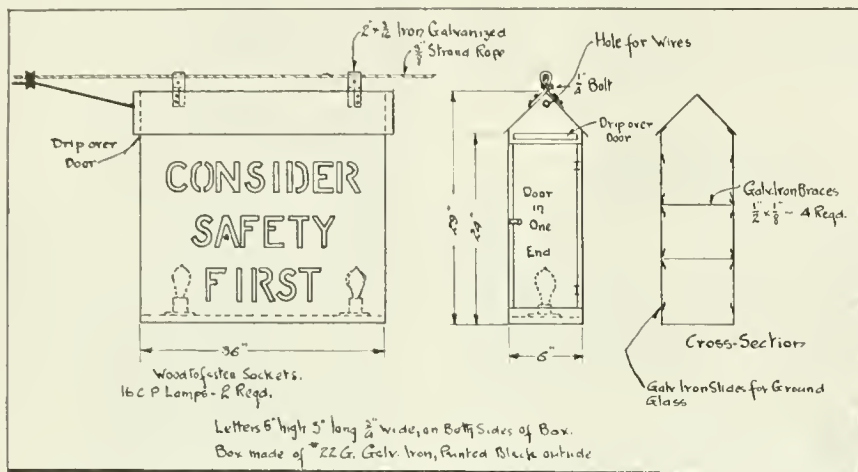 2" x 3/32 Iron Galvanized
3/8" Strand Rope
Hole for Wires
1/4" Bolt
Drip over
Door
Drip over
Door
CONSIDER
SAFETY
FIRST
Door
in
One
End
29"
24"
Galv. Iron Braces
1/2" x 1/8" - 4 Reqd.
36"
6"
Cross-Section
Wood To fasten Sockets.
16 C P Lamps - 2 Reqd.
Galv Iron Slides for Ground
Glass
Letters 5" high 3" long 3/4" wide, on Both Sides of Box.
Box made of #22 G. Galv. Iron, Painted Black outside